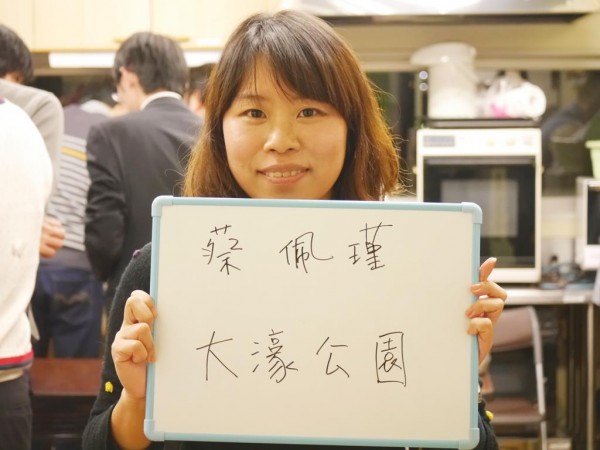 蔡佩瑾
大濠公園